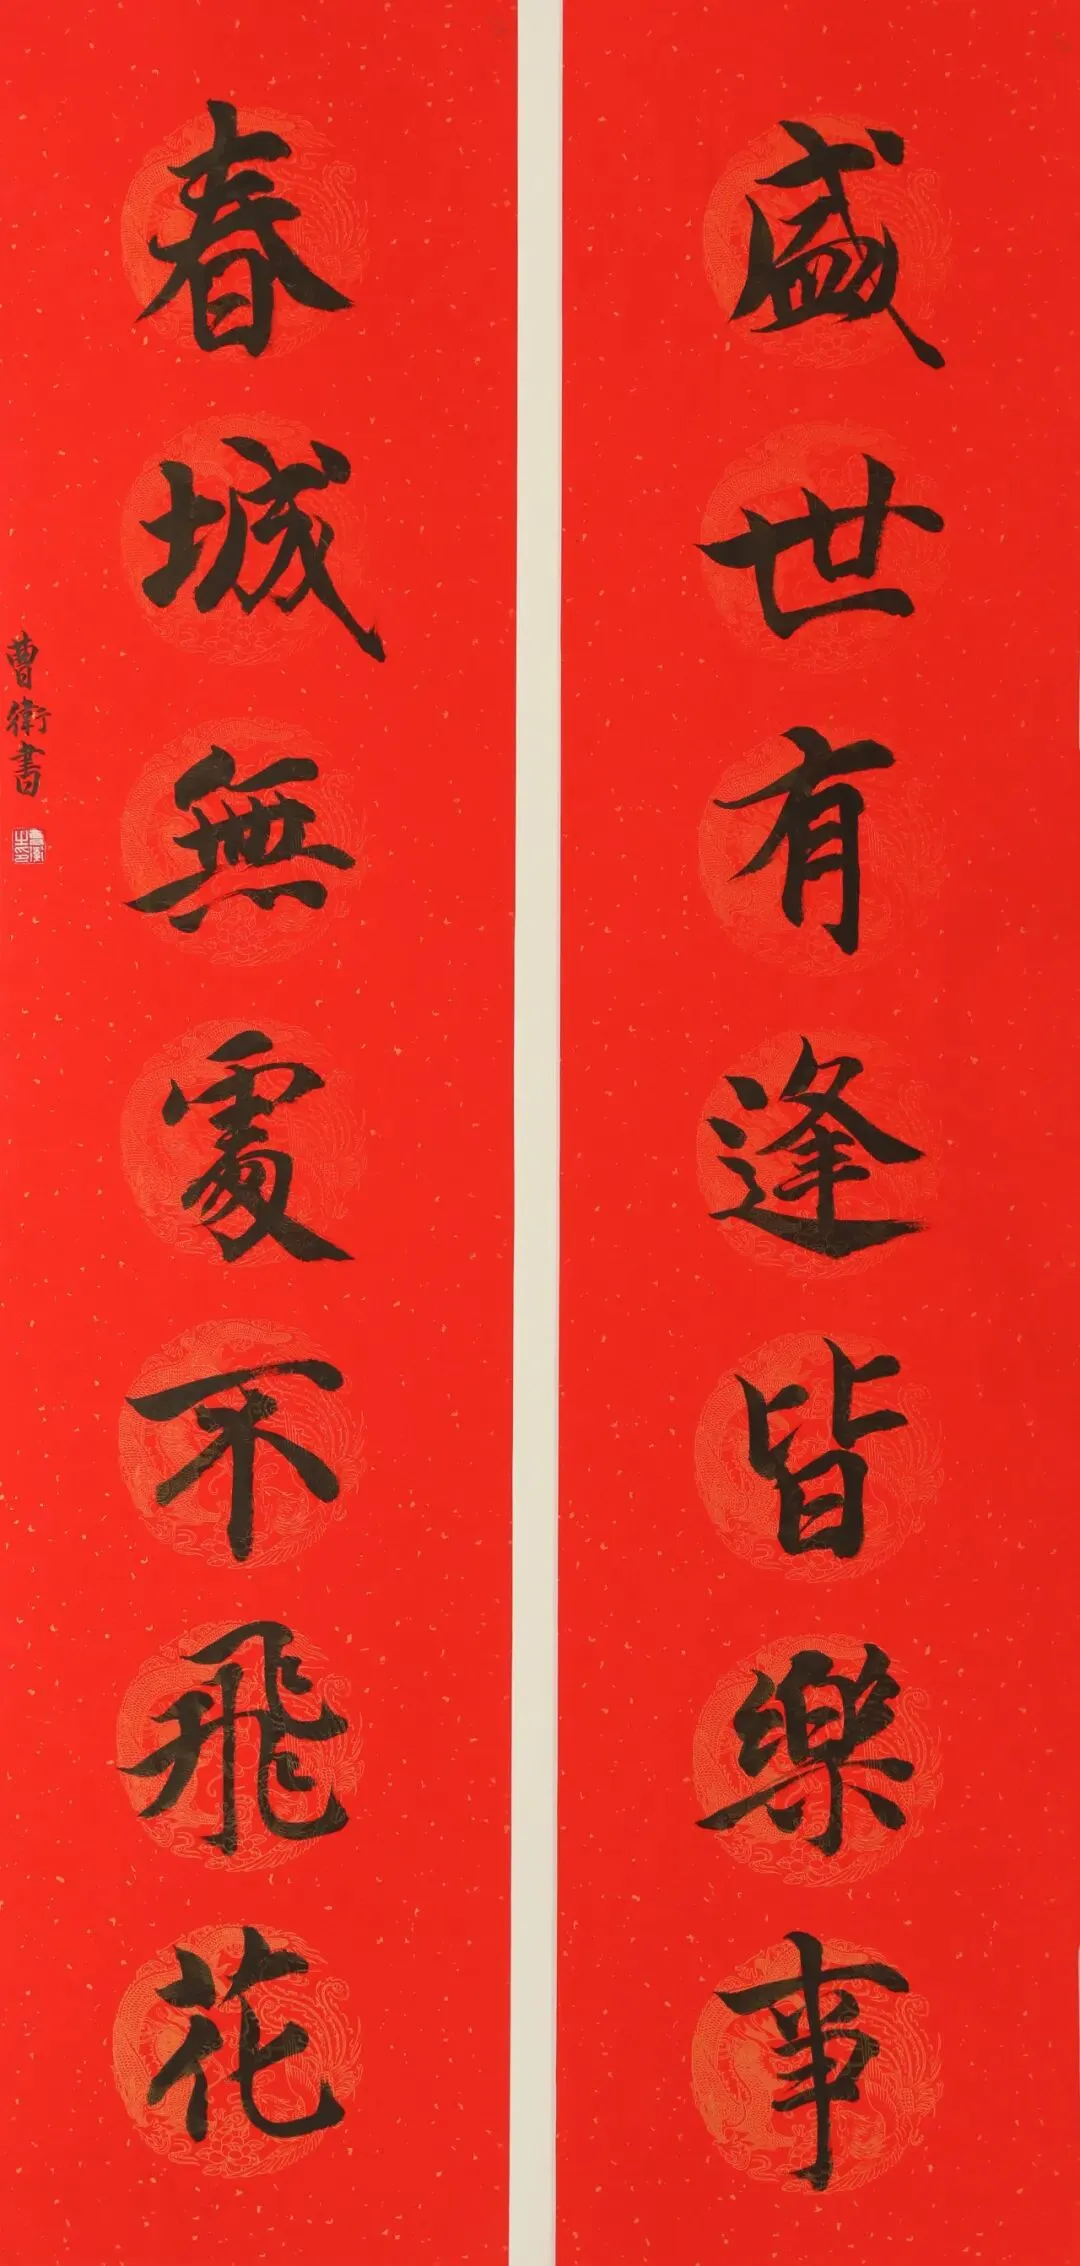 盛世有逢皆樂事
春城無處不飛花
曹衛書